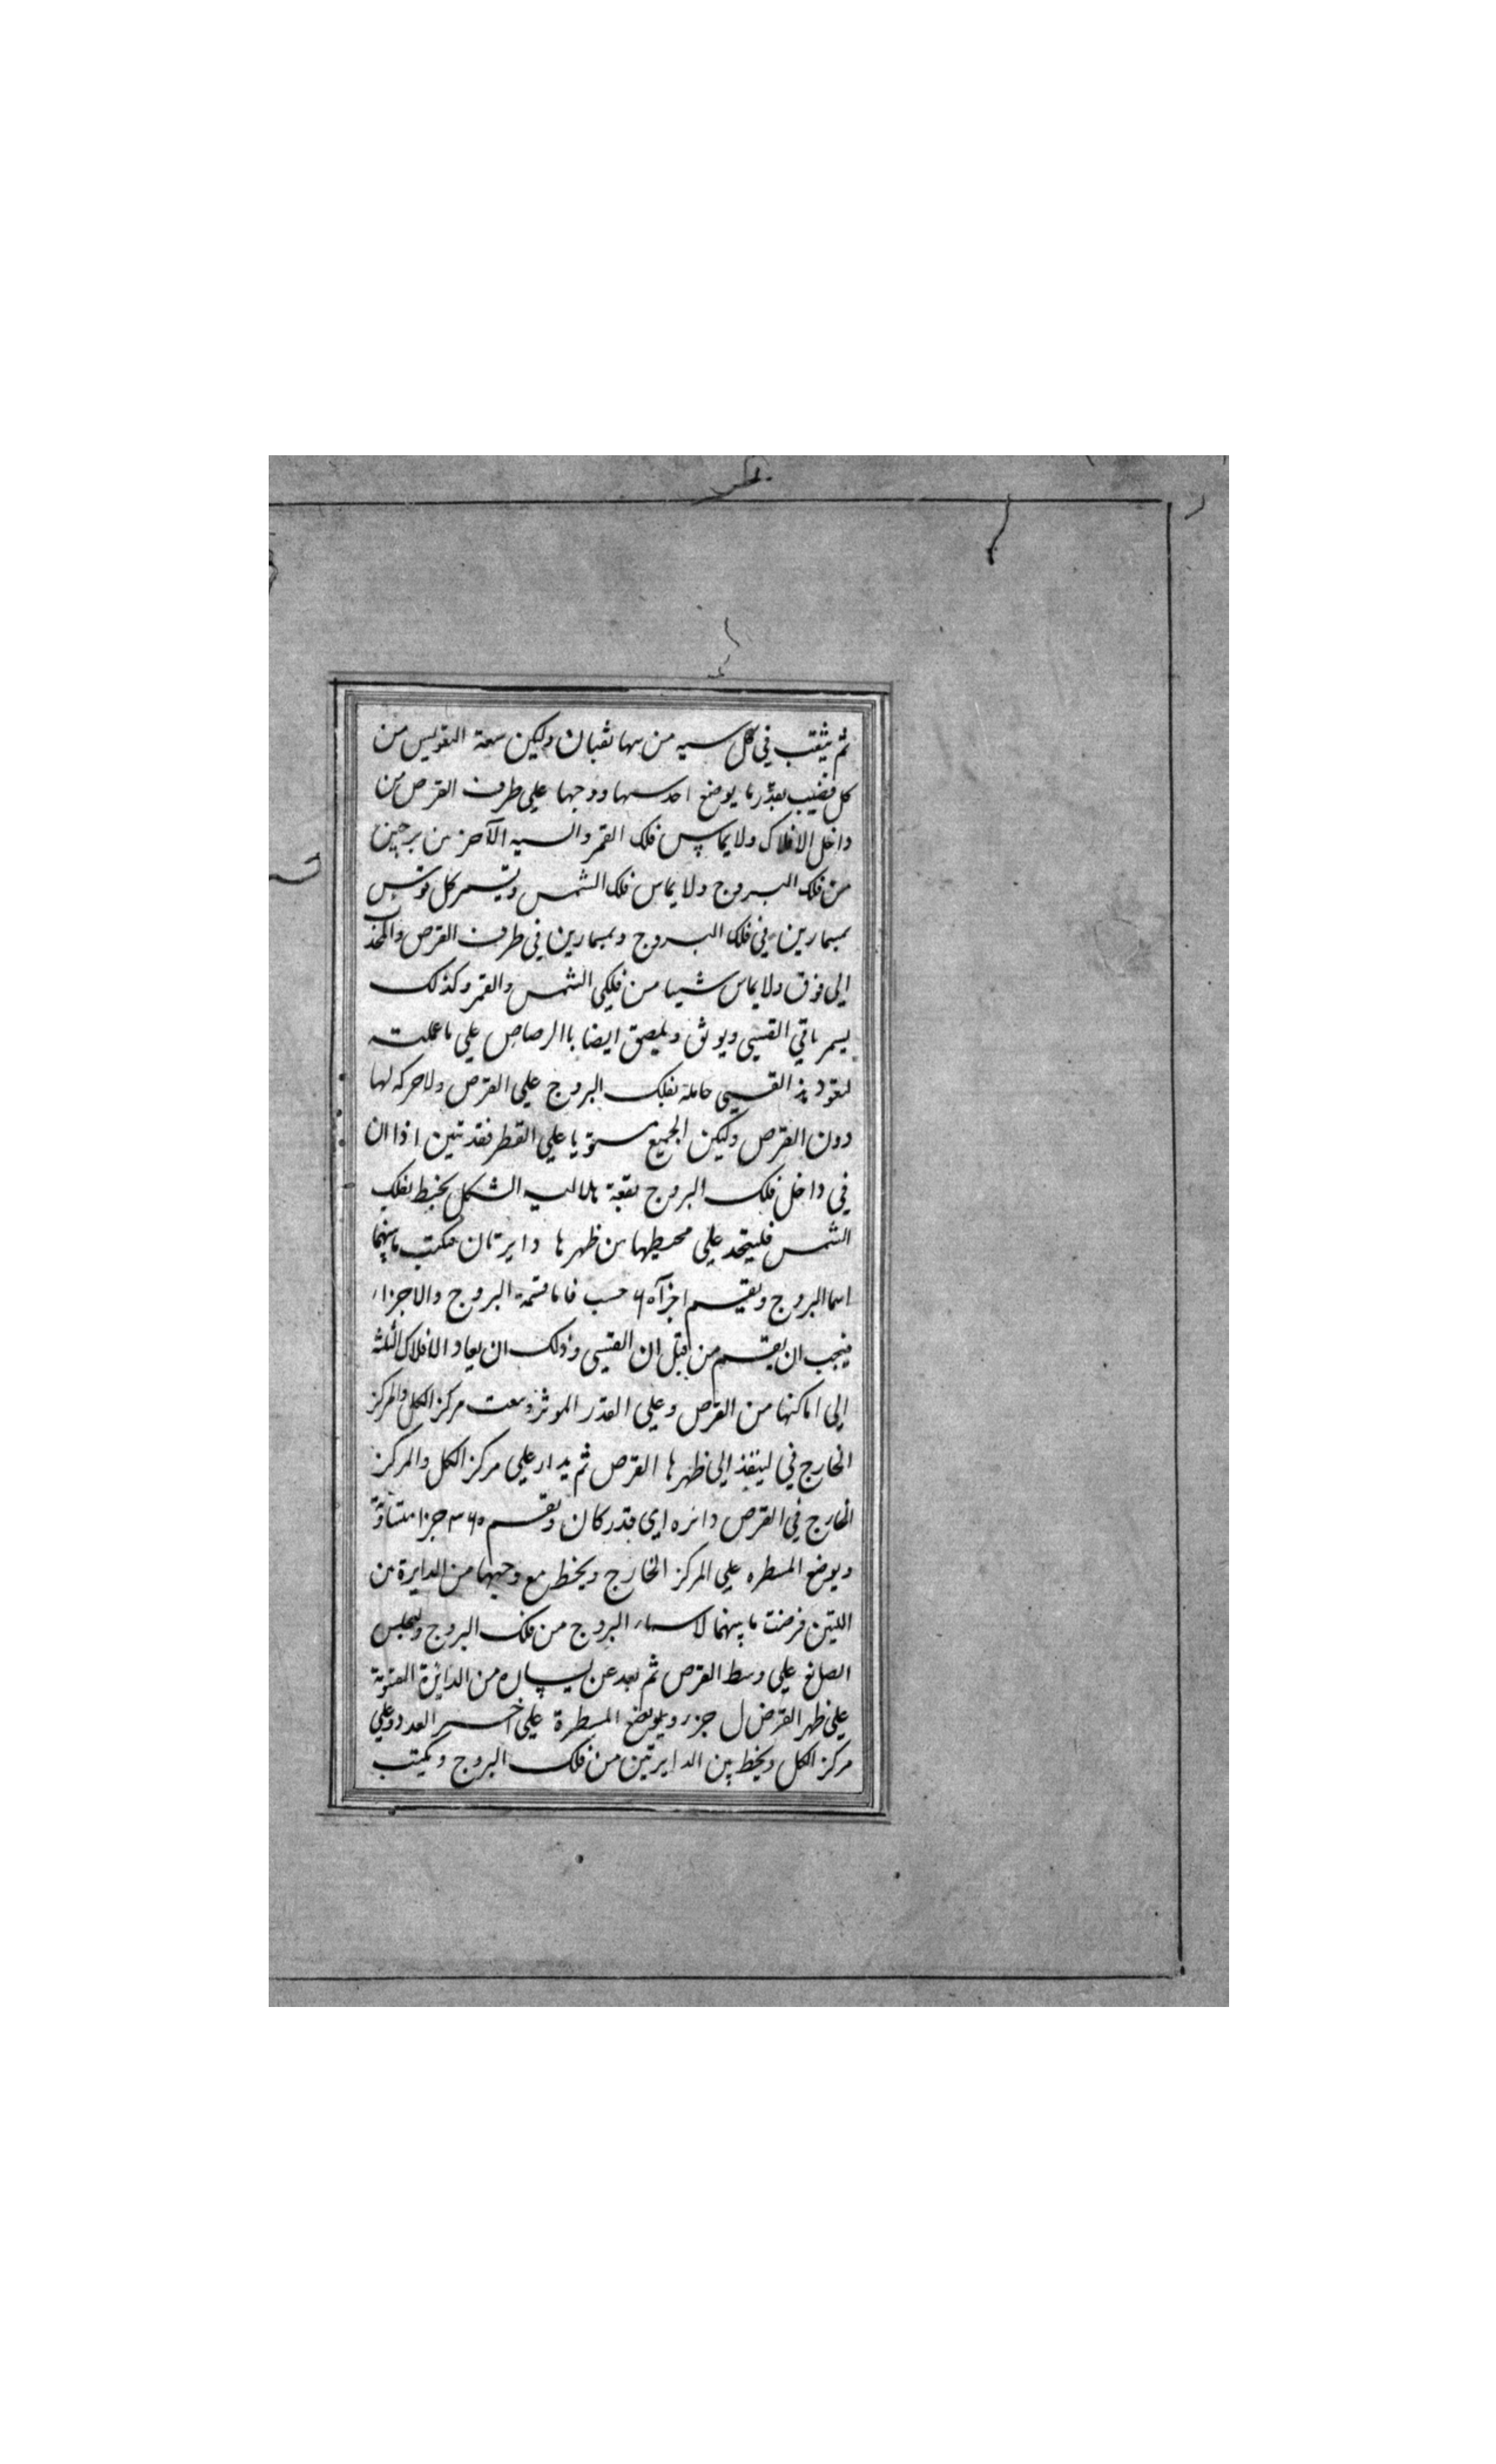 ثم يثقب في كل سيه من سها ثقبان وليكن سعة التقويس من
كل قضيب بقدر ما يوضع احد سها ووجها علي طرف القرص من
داخل الافلاك ولا يماس فلك القمر والسيه الآخر من برجين
من فلك البروج ولا يماس فلك الشمس ويسمر كل قوس
بمسمارين في فلك البروج وبمسمارين في طرف القرص والمحدب
الي فوق ولا يماس شيا من فلكي الشمس والقمر وكذلك
يسمر باقي القسي ويوثق ويلصق ايضا باالرصاص علي ما عملت
القسي حاملة لفلك البروج علي القرص ولا حركه لها
دون القرص وليكن الجميع مستويا علي القطر فقد تبين اذا ان
في داخل فلك البروج بقعة هلاليه الشكل يحيط بفلك
الشمس فليتخذ علي محيطها من ظهرها دايرتان يكتب ما بينهما
اسما البروج ويقسم اجزآ ٦٠ حسب فاما قسمة البروج والاجزاء
فيجب ان يقسم من قبل ان القسي وذلك ان يعاد الافلاك الثلثة
الي اماكنها من القرص وعلي القدر الموثر وسعت مركز الكل والمركز
الخارج في لينفذ الي ظهرها القرص ثم يدار علي مركز الكل والمركز
الخارج في القرص دائره اي قدر كان ويقسم ٣٦٠ جزا متساوية
ويوضع المسطره علي المركز الخارج ويخط مع وجهها من الدايرة من
اللتين فرضت ما بينهما لاسماء البروج من فلك البروج وليجلس
الصانع علي وسط القرص ثم بعد عن يساره من الدائرة
علي ظهر القرص ل جزء ويوضع المسطرة علي اخر العدد وعلي
مركز الكل ويخط بين الدايرتين من فلك البروج ويكتب